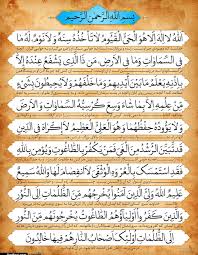 بِسْمِ اللَّهِ الرَّحْمَنِ الرَّحِيمِ
اللَّهُ لَا إِلَهَ إِلَّا هُوَ الْحَيُّ الْقَيُّومُ لَا تَأْخُذُهُ سِنَةٌ وَلَا نَوْمٌ لَهُ مَا
فِي السَّمَاوَاتِ وَمَا فِي الْأَرْضِ مَنْ ذَا الَّذِي يَشْفَعُ عِنْدَهُ إِلَّا
بِإِذْنِهِ يَعْلَمُ مَا بَيْنَ أَيْدِيهِمْ وَمَا خَلْفَهُمْ وَلَا يُحِيطُونَ بِشَيْءٍ
مِنْ عِلْمِهِ إِلَّا بِمَا شَاءَ وَسِعَ كُرْسِيُّهُ السَّمَاوَاتِ وَالْأَرْضَ
وَلَا يَئُودُهُ حِفْظُهُمَا وَهُوَ الْعَلِيُّ الْعَظِيمُ لَا إِكْرَاهَ فِي الدِّينِ
قَدْ تَبَيَّنَ الرُّشْدُ مِنَ الْغَيِّ فَمَنْ يَكْفُرْ بِالطَّاغُوتِ وَيُؤْمِنْ بِاللَّهِ
فَقَدِ اسْتَمْسَكَ بِالْعُرْوَةِ الْوُثْقَى لَا انْفِصَامَ لَهَا وَاللَّهُ سَمِيعٌ
عَلِيمٌ اللَّهُ وَلِيُّ الَّذِينَ آمَنُوا يُخْرِجُهُمْ مِنَ الظُّلُمَاتِ إِلَى النُّورِ
وَالَّذِينَ كَفَرُوا أَوْلِيَاؤُهُمُ الطَّاغُوتُ يُخْرِجُونَهُمْ مِنَ النُّورِ
إِلَى الظُّلُمَاتِ أُولَئِكَ أَصْحَابُ النَّارِ هُمْ فِيهَا خَالِدُونَ